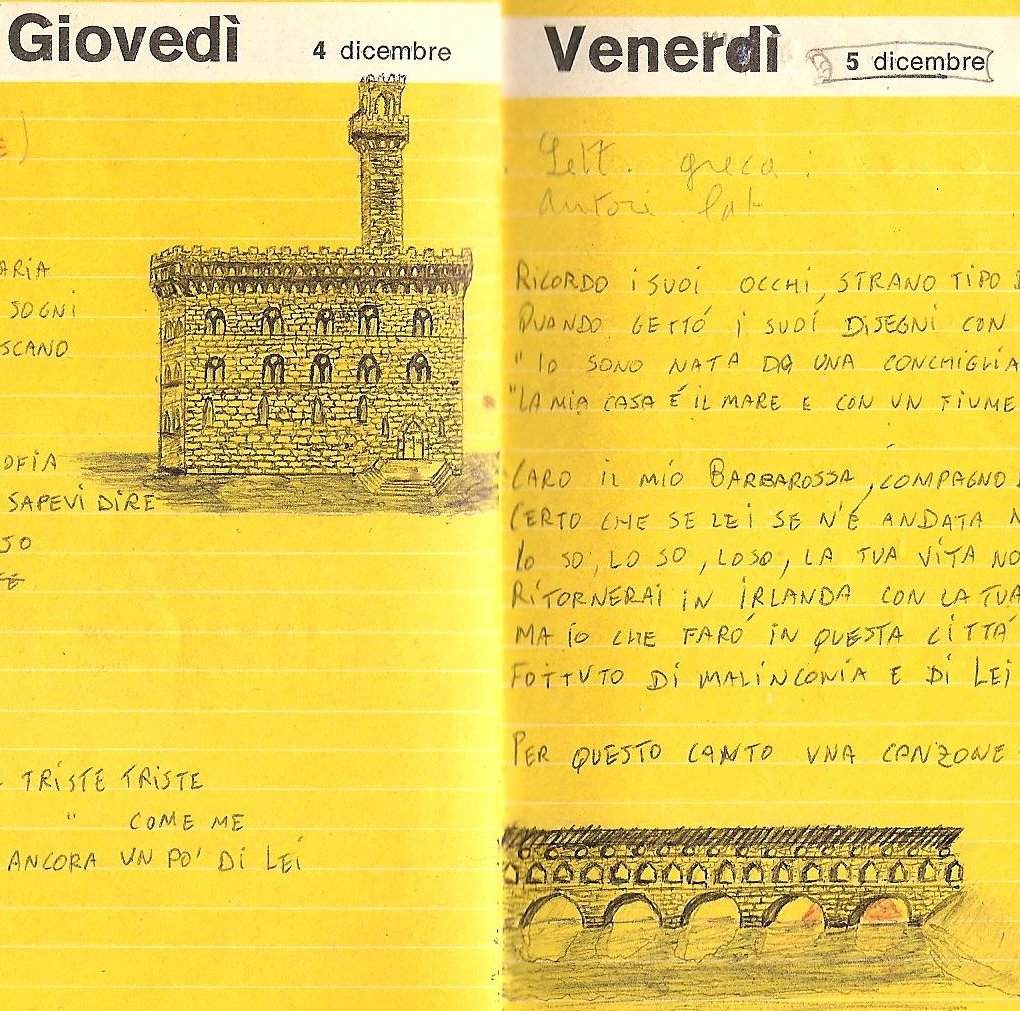 Giovedì 4 dicembre
ARIA
SOGNI
SCANO
OFIA
SAPEVI DIRE
SO
TRISTE TRISTE
" COME ME
ANCORA UN PO' DI LEI
Venerdì 5 dicembre
Lett. greca :
autori lat
RICORDO i SUOI OCCHI, STRANO TIPO
QUANDO GETTÓ i SUOI DISEGNI CON
"IO SONO NATA DA UNA CONCHIGLIA
"LA MIA CASA É IL MARE E CON UN FIUME
CARO IL MIO BARBAROSSA, COMPAGNO
CERTO CHE SE LEI SE N'É ANDATA
IO SO, LO SO, LO SO, LA TUA VITA NO
RITORNERAI IN IRLANDA CON LA TUA
MA IO CHE FARÓ IN QUESTA CITTÁ
FOTTUTO DI MALINCONIA E DI LEI
PER QUESTO CANTO UNA CANZONE